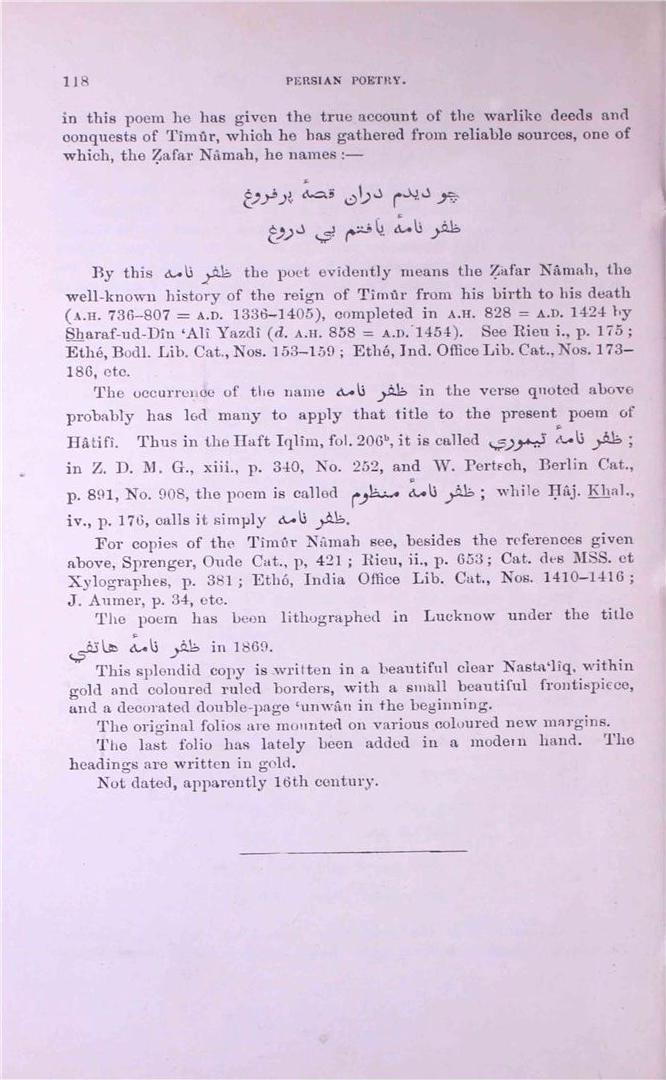 118 PERSIAN POETRY.
in this poem he has given the true account of the warlike deeds and
conquests of Tîmûr, which he has gathered from reliable sources, one of
which, the Ẓafar Nâmah, he names :—
چو ديدم دران قصهٔ پرفروغ
ظفر نامهٔ يافتم بي دروغ
By this ظفر نامه the poet evidently means the Ẓafar Nâmah, the
well-known history of the reign of Tîmûr from his birth to his death
(A.H. 736–807 = A.D. 1336–1405), completed in A.H. 828 = A.D. 1424 by
Sharaf-ud-Dîn ‘Alî Yazdî (d. A.H. 858 = A.D. 1454). See Rieu i., p. 175 ;
Ethé, Bodl. Lib. Cat., Nos. 153–159 ; Ethé, Ind. Office Lib. Cat., Nos. 173–
186, etc.
The occurrence of the name ظفر نامه in the verse quoted above
probably has led many to apply that title to the present poem of
Hâtifî. Thus in the Haft Iqlîm, fol. 206ᵇ, it is called ظفر نامهٔ تيموري ;
in Z. D. M. G., xiii., p. 340, No. 252, and W. Pertsch, Berlin Cat.,
p. 891, No. 908, the poem is called ظفر نامهٔ منظوم ; while Ḥâj. Khal.,
iv., p. 176, calls it simply ظفر نامه.
For copies of the Tîmûr Nâmah see, besides the references given
above, Sprenger, Oude Cat., p, 421 ; Rieu, ii., p. 653 ; Cat. des MSS. et
Xylographes, p. 381 ; Ethé, India Office Lib. Cat., Nos. 1410–1416 ;
J. Aumer, p. 34, etc.
The poem has been lithographed in Lucknow under the title
ظفر نامهٔ هاتفي in 1869.
This splendid copy is written in a beautiful clear Nasta‘lîq, within
gold and coloured ruled borders, with a small beautiful frontispiece,
and a decorated double-page ‘unwân in the beginning.
The original folios are mounted on various coloured new margins.
The last folio has lately been added in a modern hand. The
headings are written in gold.
Not dated, apparently 16th century.